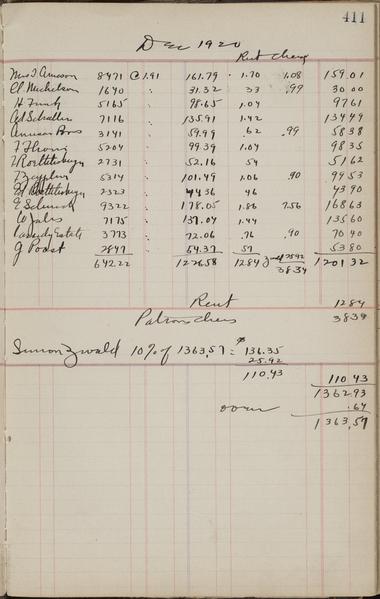 411
Dec 1920
Rent Chees
8471 @ 1.91 161.79 1.70 1.08 159.01
Cl Mickelson 1640 " 31.32 33 .99 30 00
H Funk 5165 " 98.65 1.04 97 61
Schaller 7116 " 135.91 1.42 134 49
Bros 3141 " 59.99 .62 .99 58 38
5204 " 99.39 1.04 98 35
2731 " 52.16 54 51 62
5314 " 101.49 1.06 .90 99 53
2323 " 44 36 46 43 90
9322 " 178.05 1.86 7.56 168 63
7175 " 137.04 1.44 135 60
Cassidy Estate 3773 " 72.06 .76 .90 70 40
G Poast 2847 " 54.37 57 53 80
642.22 1226.58 1284 25 92 1201 32
38 34
Rent 12 84
Patrons Chees 38 34
Simon Zwald 10% of 1363,57 = $ 136.35
25.92
110.43 110 43
1362.93
over .64
1363,57